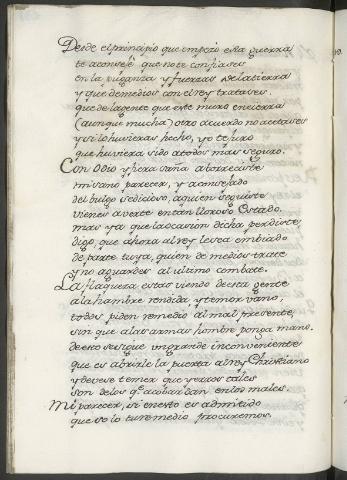 Desde el principio que empezó esta guerra
te aconsejé que no te confiases
en la pujanza y fuerzas de la tierra
y que de medios con el rey tratases.
que de la gente que este muro encierra
(aunque mucha) otro acuerdo no acetases
y si lo huvieras hecho, yo te juro
que huviera sido a todos mas seguro.
Con Odio y fiera saña aborreciste
mi sano parecer, y aconsejado
del bulgo sedicioso, a quien seguiste
vienes a verte en tan lloroso Estado.
mas ya que la ocasion dicha perdiste
digo, que ahora al rey le sea embiado
de parte tuya, quien de medios trate
y no aguardes al ultimo combate.
La flaqueza estas viendo desta gente
a la hambre rendida, y temor vano,
todos piden remedio al mal presente,
sin que a las armas hombre ponga mano.
desto se sigue un grande inconveniente
que es abrirle la puerta al rey Christiano
y devese temer que yerros tales
son de los q. acobardan en los males.
Mi parecer, si en esto es admitido
que solo tu remedio procuremos,